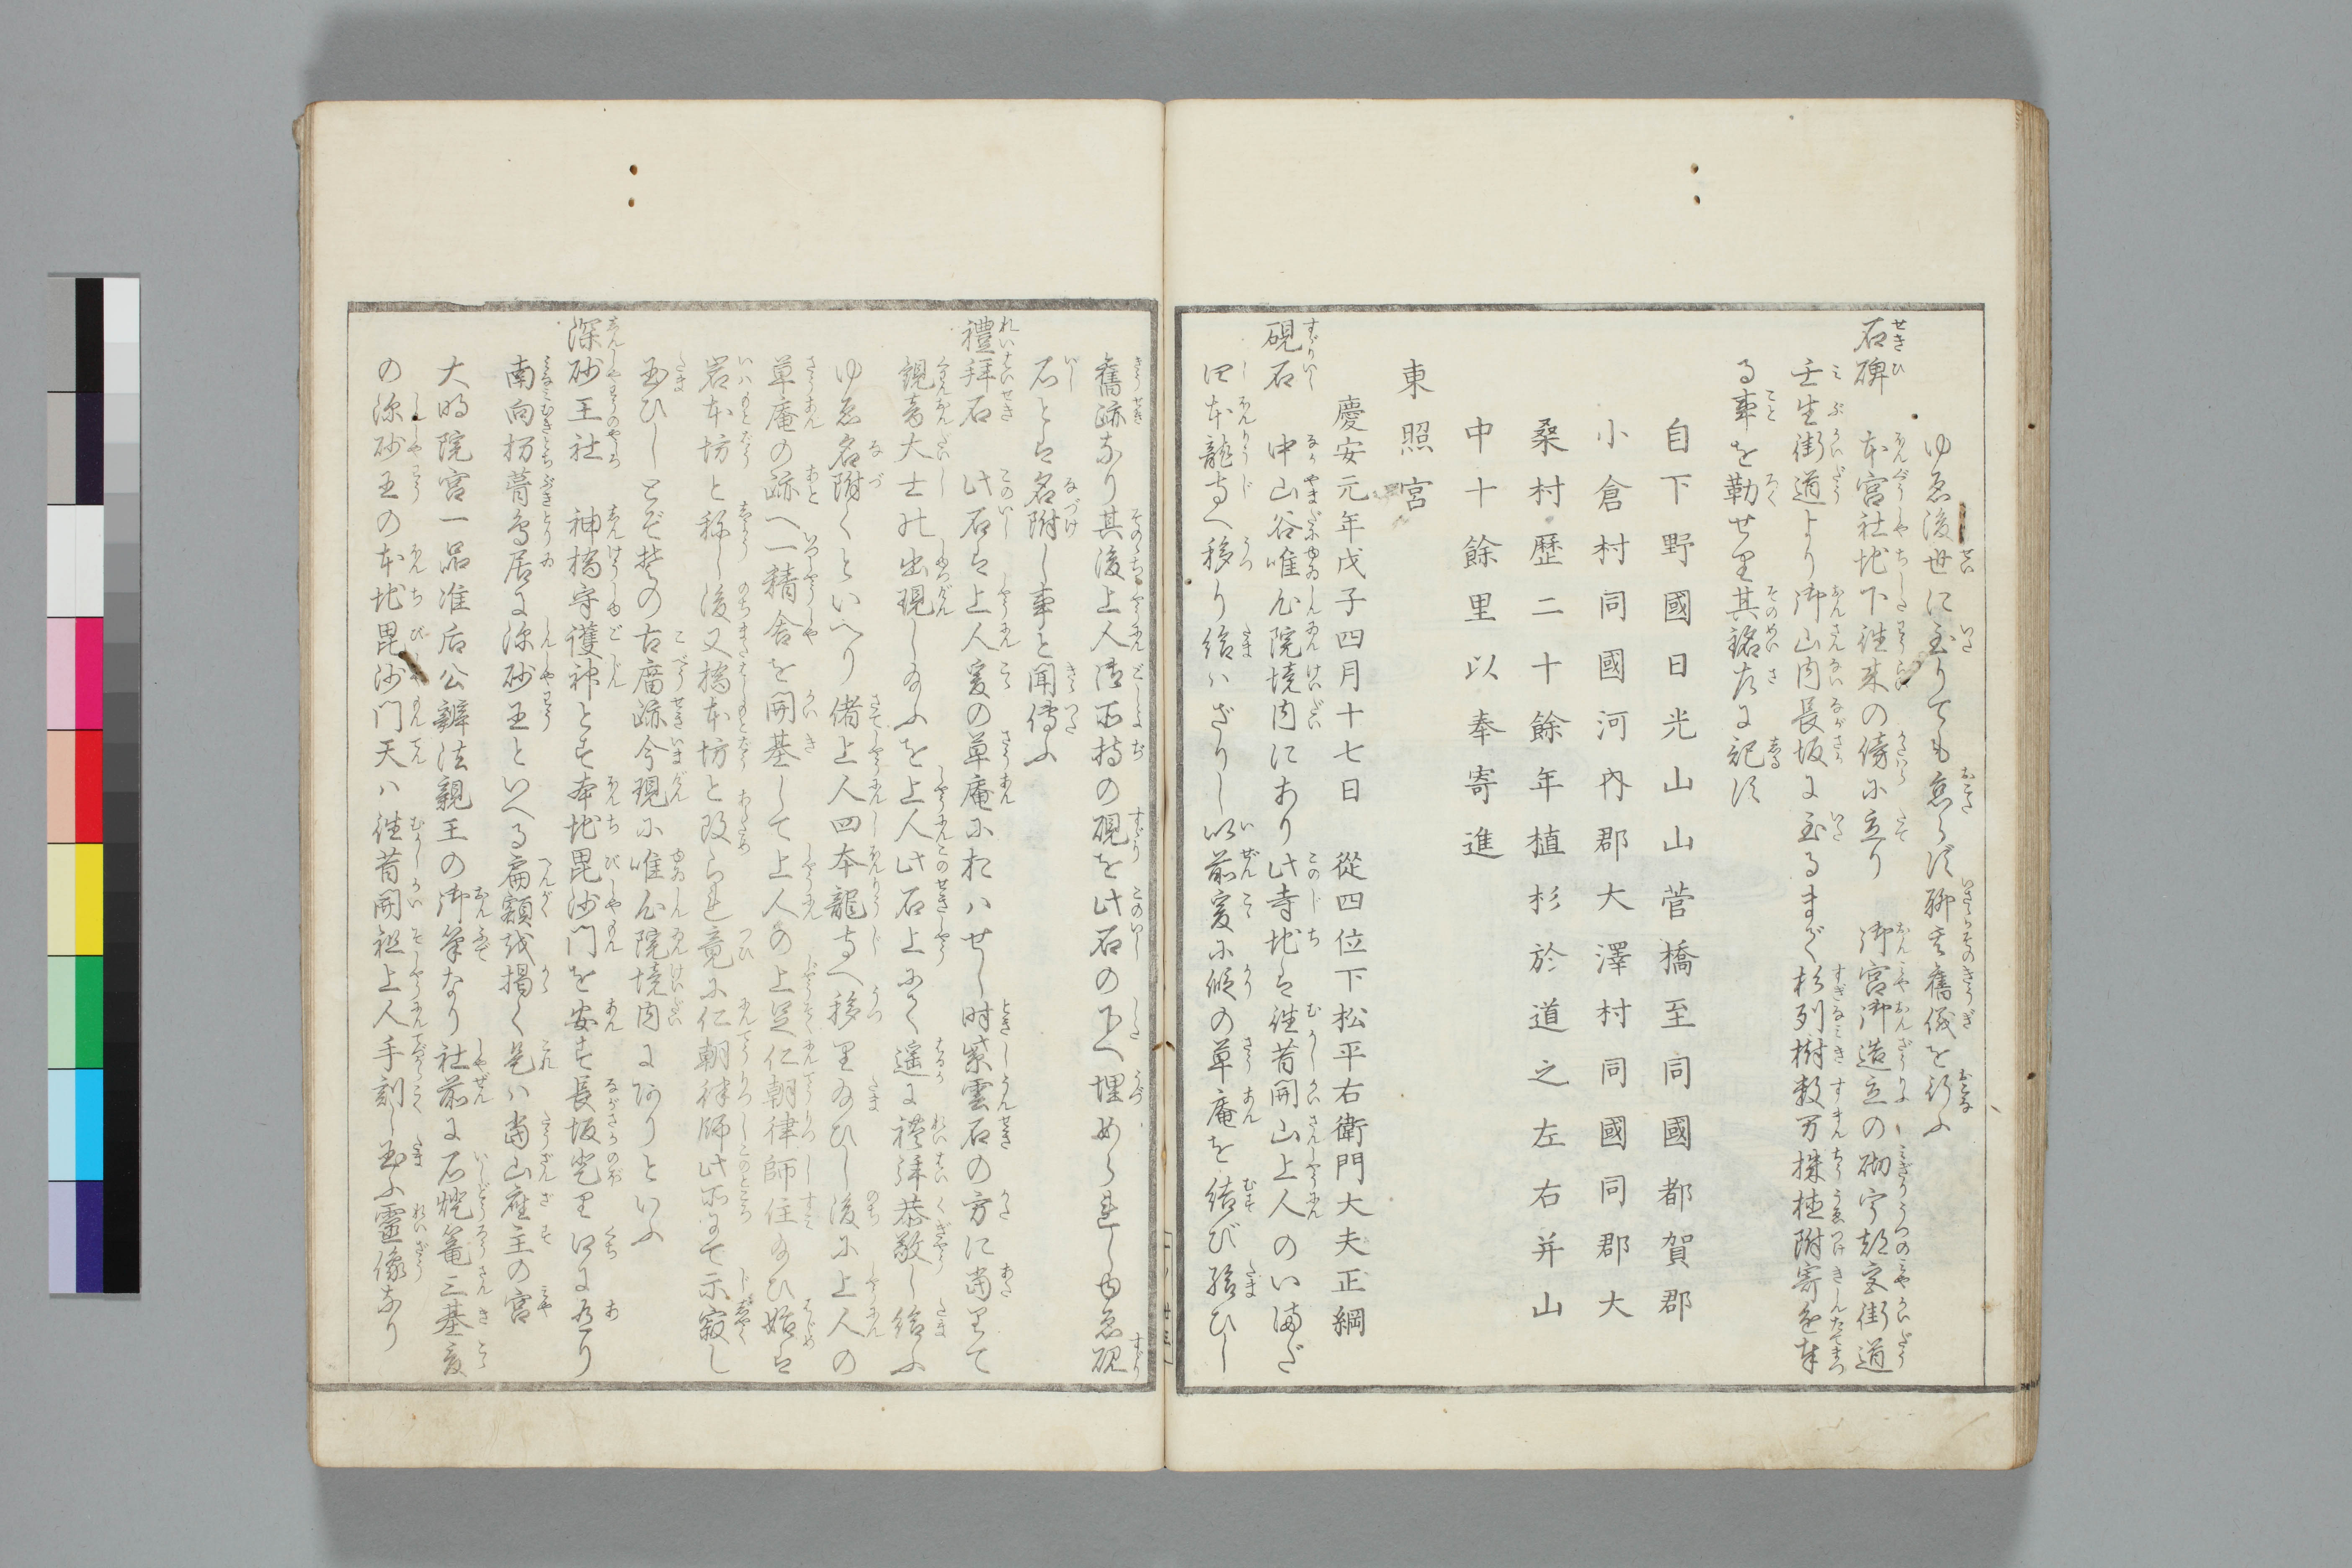 ゆゑ後世に至りても怠らず聊其舊儀を行ふ
石碑　本宮社地下往来の傍に立り　御宮御造立の砌宇都宮街道
壬生街道より御山内長坂に至るまで杉列樹数万株植附寄進奉
る事を勒せり其銘左に記す
自下野國日光山山菅橋至同國都賀郡
小倉村同國河內郡大澤村同國同郡大
桑村歷二十餘年植杉於道之左右并山
中十餘里以奉寄進
東照宮
慶安元年戊子四月十七日　從四位下松平右衛門大夫正綱
硯石　中山谷唯心院境内にあり此寺地は往昔開山上人のいまだ
四本龍寺へ移り給ハざりし以前爰に假の草庵を結び給ひし
舊跡なり其後上人御所持の硯を此石の下へ埋めらしゆゑ硯
石とは名附し事と聞傳ふ
禮拜石　此石は上人爰の草庵におハせし時紫雲石の方に當りて
觀音大士の出現し給ふを上人此石上にて遥に禮拜恭敬し給ふ
ゆゑ名附くといへり偖上人四本龍寺へ移り給ひし後に上人の
草庵の跡へ一精舎を開基して上人の上足仁朝律師住給ひ始は
岩本坊と称し後又橋本坊と改られ竟に仁朝律師此所にて示寂し
玉ひしとぞ其の古廣跡今現に唯心院境内にありといふ
深砂王社　神橋守護神とす本地毘沙門を安す長坂登り口に在り
南向栃葺鳥居に深砂王といへる扁額を掲く是ハ當山座主の宮
大明院宮一品准后公辨法親王の御筆なり社前に石燈籠三基爰
の深砂王の本地毘沙門天ハ往昔開祖上人手刻し玉ふ靈像なり